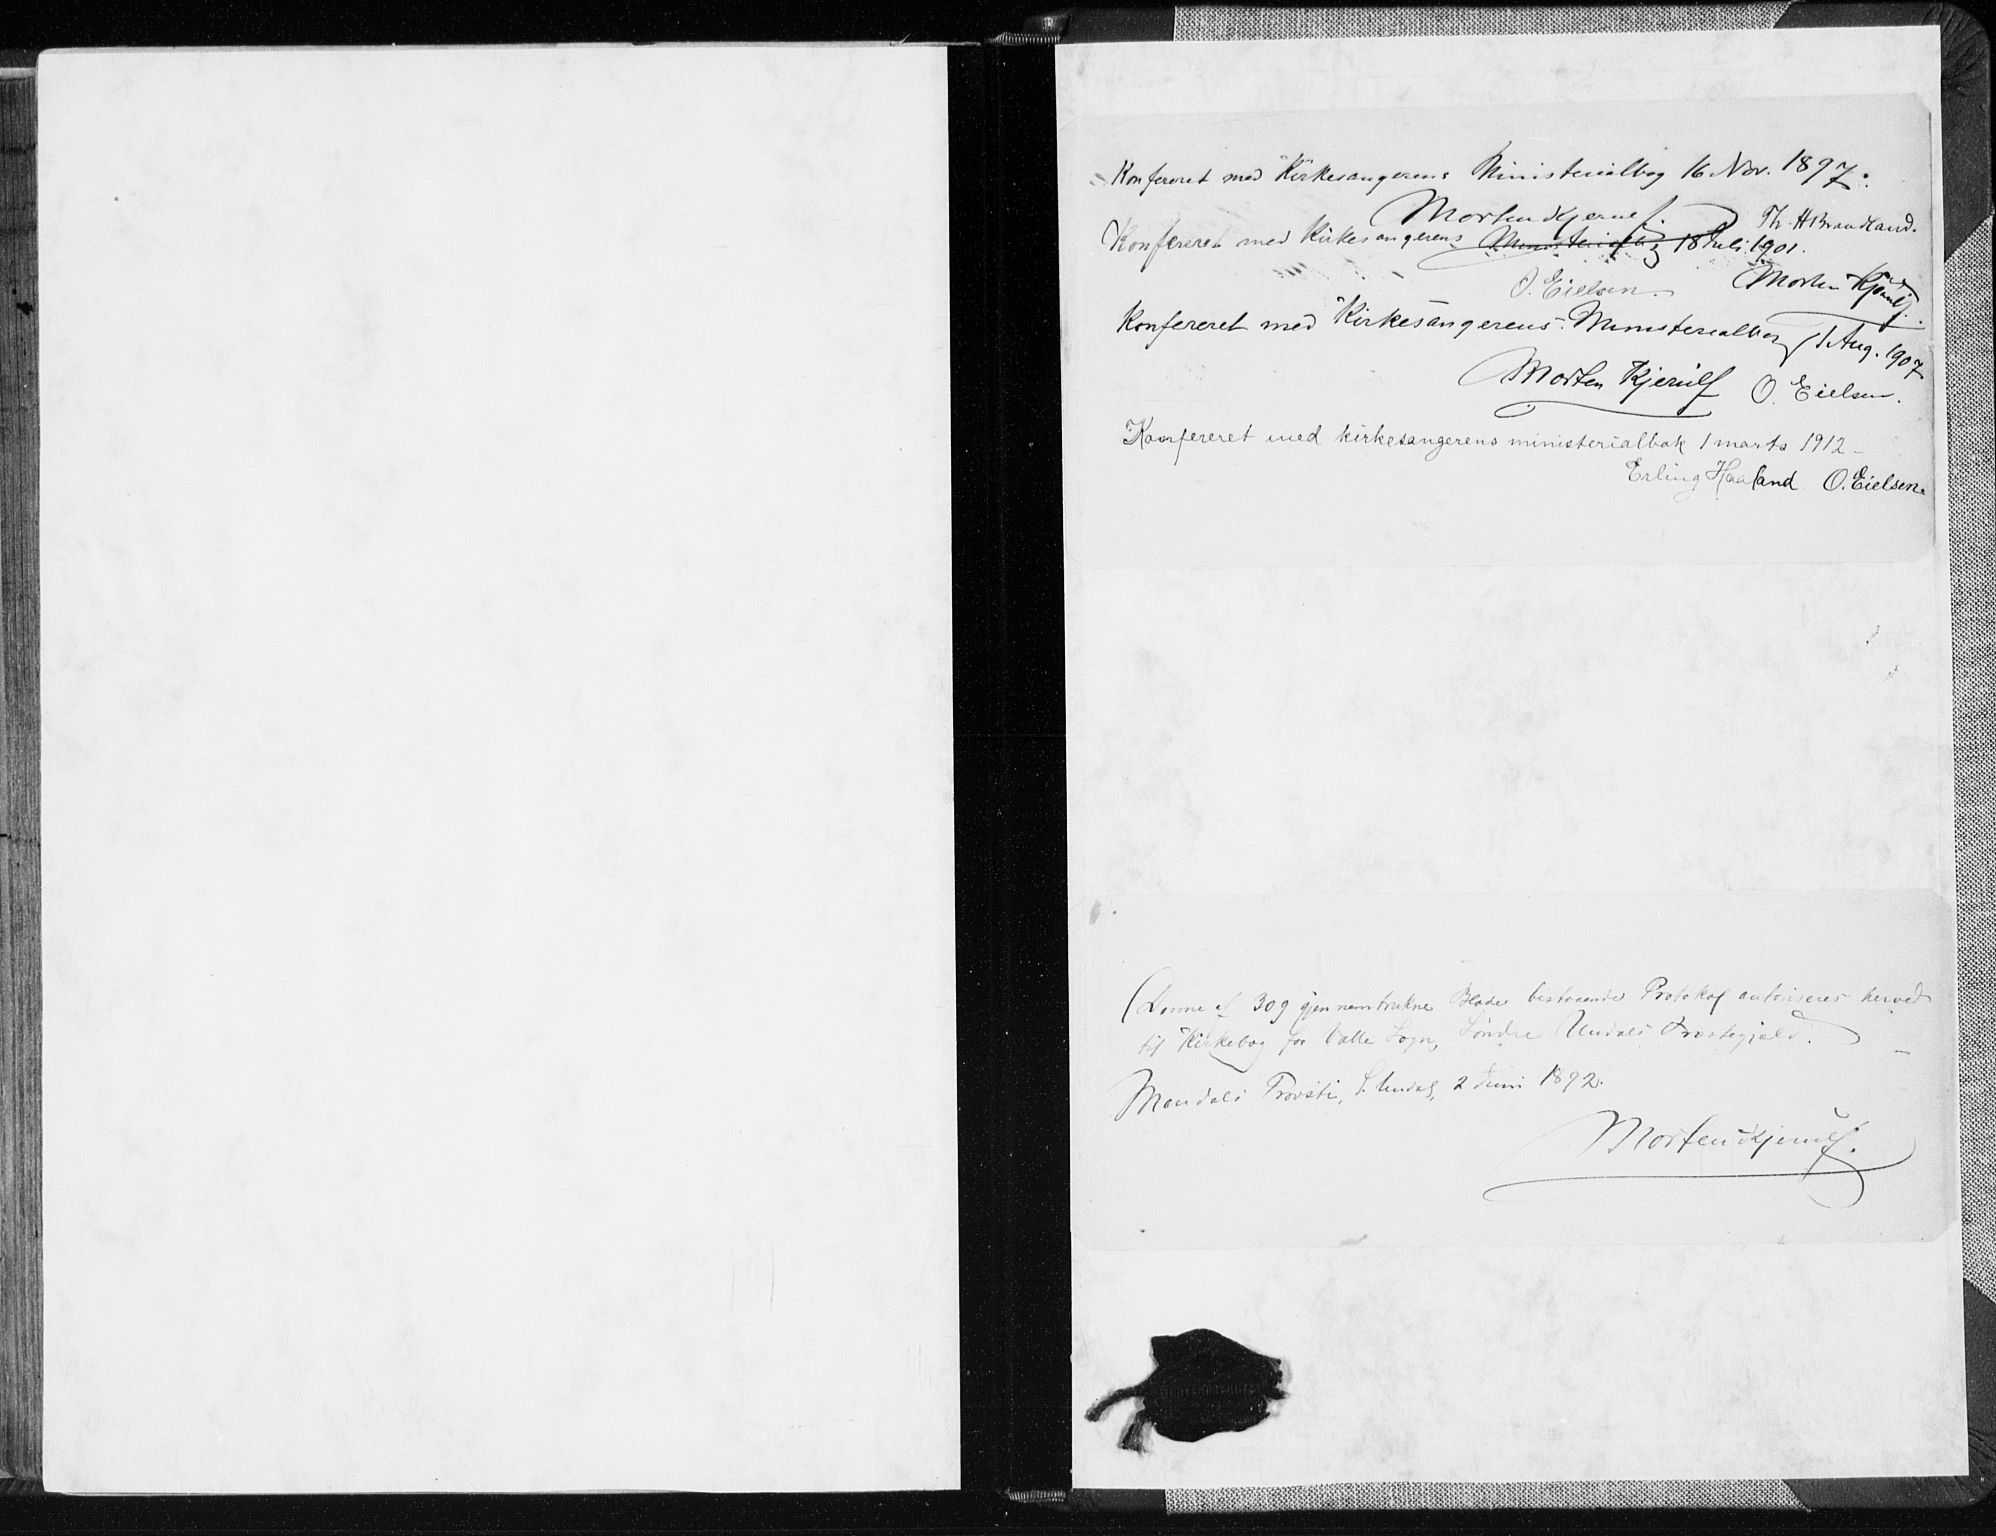 Konfereret med Kirkesangerens Ministerialbog 16 Nov. 1897.
Morten Kjerulf. Th. H Brandland.
Konfereret med Kirkesangerens Ministerialbog 18 Juli 1901.
O. Eielsen. Morten Kjerulf.
Konfereret med Kirkesangerens Ministerialbog 1 Aug. 1907
Morten Kjerulf O. Eielsen.
Konfereret med kirkesangerens ministerialbok 1 marts 1912 -
Erling Haaland O. Eielsen.
Denne af 309 gjennemtrukne Blade bestaaende Protokol autoriseres herved
til Kirkebog for Valle Sogn, Søndre Undals Præstegjæld.
Mandals Provsti, S. Undal, 2 Juni 1892.
Morten Kjerulf.